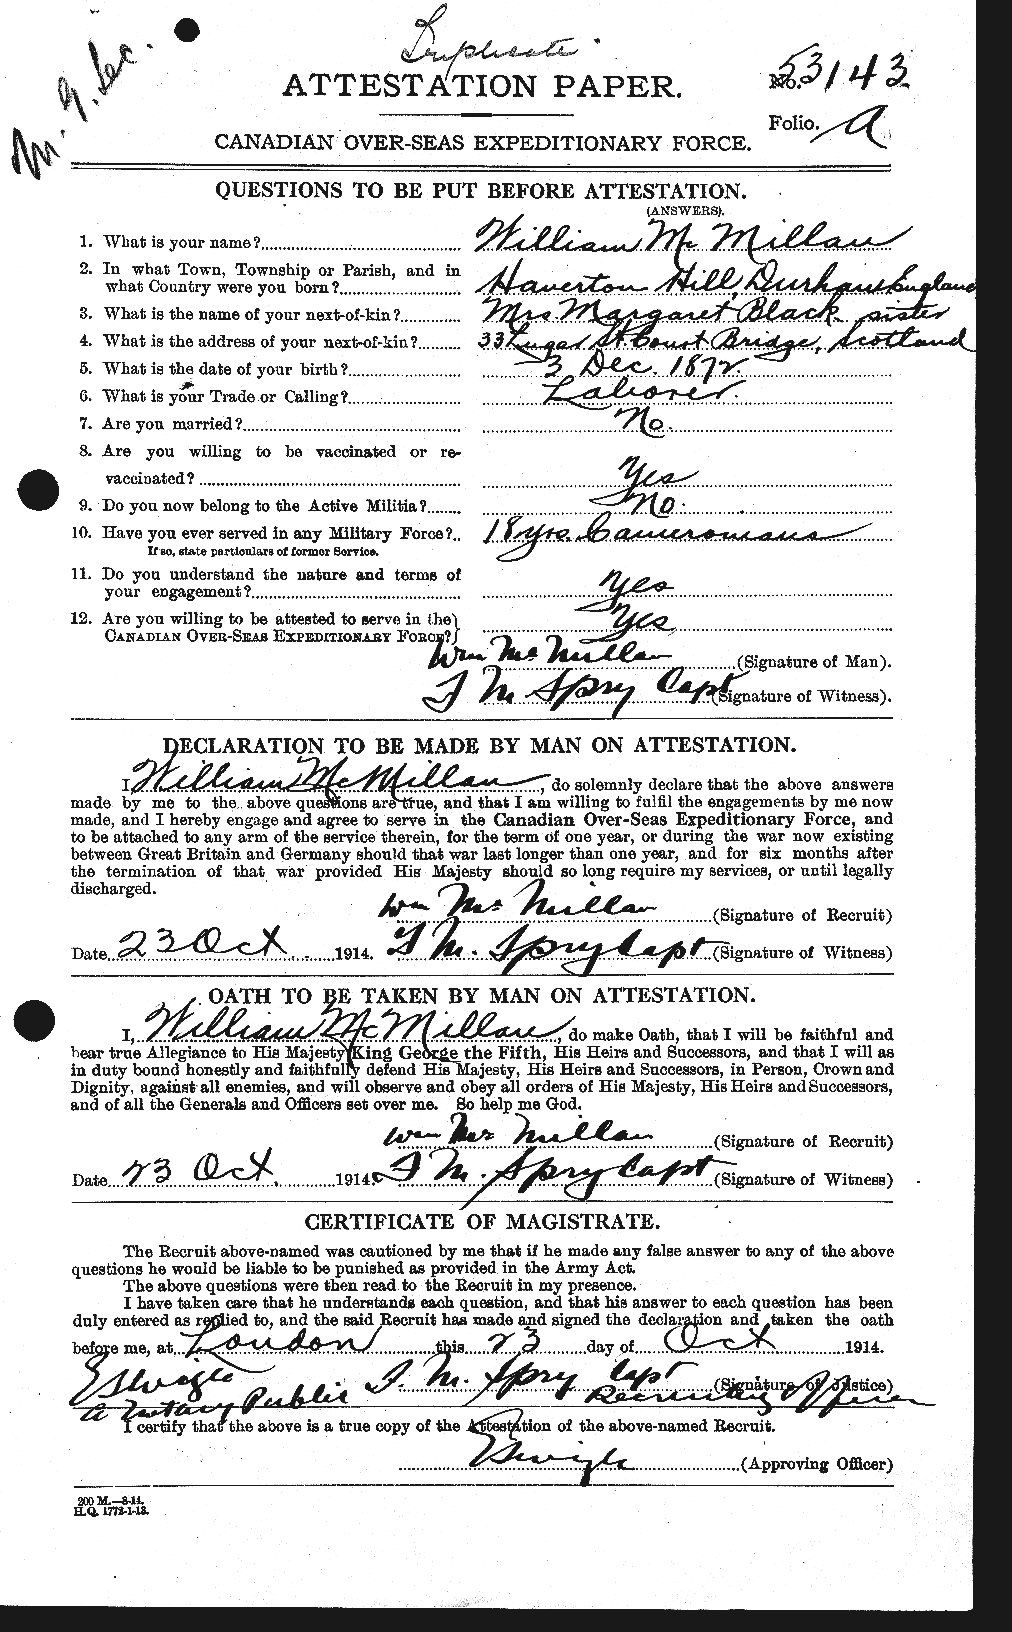 Duplicate
M. G. Sec.
ATTESTATION PAPER.
No. 53143
Folio. A
CANADIAN OVER-SEAS EXPEDITIONARY FORCE.
QUESTIONS TO BE PUT BEFORE ATTESTATION.
(ANSWERS).
1. What is your name? William McMillan
2. In what Town, Township or Parish, and in
what Country were you born? Haverton Hill, Durham England
3. What is the name of your next-of-kin? Mrs Margaret Black sister
4. What is the address of your next-of-kin? 33 Lugar St Court Bridge, Scotland
5. What is the date of your birth? 3 Dec. 1872
6. What is your Trade or Calling? Laborer.
7. Are you married? No.
8. Are you willing to be vaccinated or re-
vaccinated? Yes
9. Do you now belong to the Active Militia? No.
10. Have you ever served in any Military Force? 18 yrs. Cameronians
If so, state particulars of former Service.
11. Do you understand the nature and terms of
your engagement? Yes
12. Are you willing to be attested to serve in the
CANADIAN OVER-SEAS EXPEDITIONARY FORCE? Yes
Wm McMillan (Signature of Man).
T M Spry Capt (Signature of Witness).
DECLARATION TO BE MADE BY MAN ON ATTESTATION.
I William McMillan, do solemnly declare that the above answers
made by me to the above questions are true, and that I am willing to fulfil the engagements by me now
made, and I hereby engage and agree to serve in the Canadian Over-Seas Expeditionary Force, and
to be attached to any arm of the service therein, for the term of one year, or during the war now existing
between Great Britain and Germany should that war last longer than one year, and for six months after
the termination of that war provided His Majesty should so long require my services, or until legally
discharged.
Wm McMillan (Signature of Recruit)
Date 23 Oct 1914. T M. Spry Capt (Signature of Witness)
OATH TO BE TAKEN BY MAN ON ATTESTATION.
I, William McMillan, do make Oath, that I will be faithful and
bear true Allegiance to His Majesty King George the Fifth, His Heirs and Successors, and that I will as
in duty bound honestly and faithfully defend His Majesty, His Heirs and Successors, in Person, Crown and
Dignity, against all enemies, and will observe and obey all orders of His Majesty, His Heirs and Successors,
and of all the Generals and Officers set over me. So help me God.
Wm McMillan (Signature of Recruit)
Date 23 Oct 1914 T M. Spry Capt (Signature of Witness)
CERTIFICATE OF MAGISTRATE.
The Recruit above-named was cautioned by me that if he made any false answer to any of the above
questions he would be liable to be punished as provided in the Army Act.
The above questions were then read to the Recruit in my presence.
I have taken care that he understands each question, and that his answer to each question has been
duly entered as replied to, and the said Recruit has made and signed the declaration and taken the oath
before me, at London this 23 day of Oct 1914.
T. M. Spry Capt (Signature of Justice)
A Notary Public Recruiting Officer
I certify that the above is a true copy of the Attestation of the above-named Recruit.
(Approving Officer)
200 M.—8-14.
H.Q. 1772-1-13.